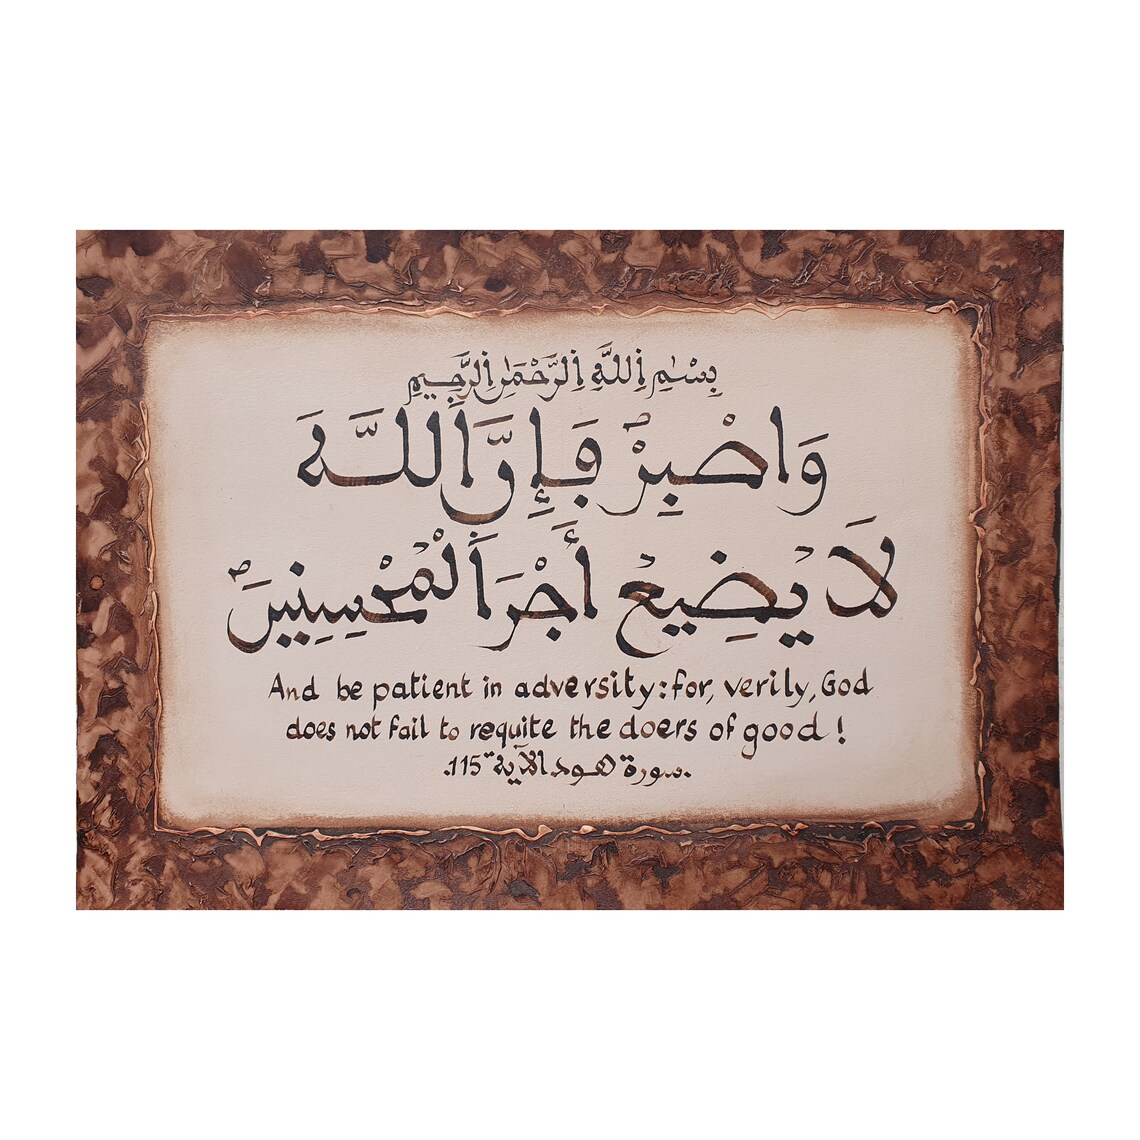 بِسْمِ اللَّهِ الرَّحْمَٰنِ الرَّحِيمِ
وَاصْبِرْ فَإِنَّ اللَّهَ
لَا يُضِيعُ أَجْرَ الْمُحْسِنِينَ
And be patient in adversity: for, verily, God
does not fail to requite the doers of good!
.سورة هود الآية 115.